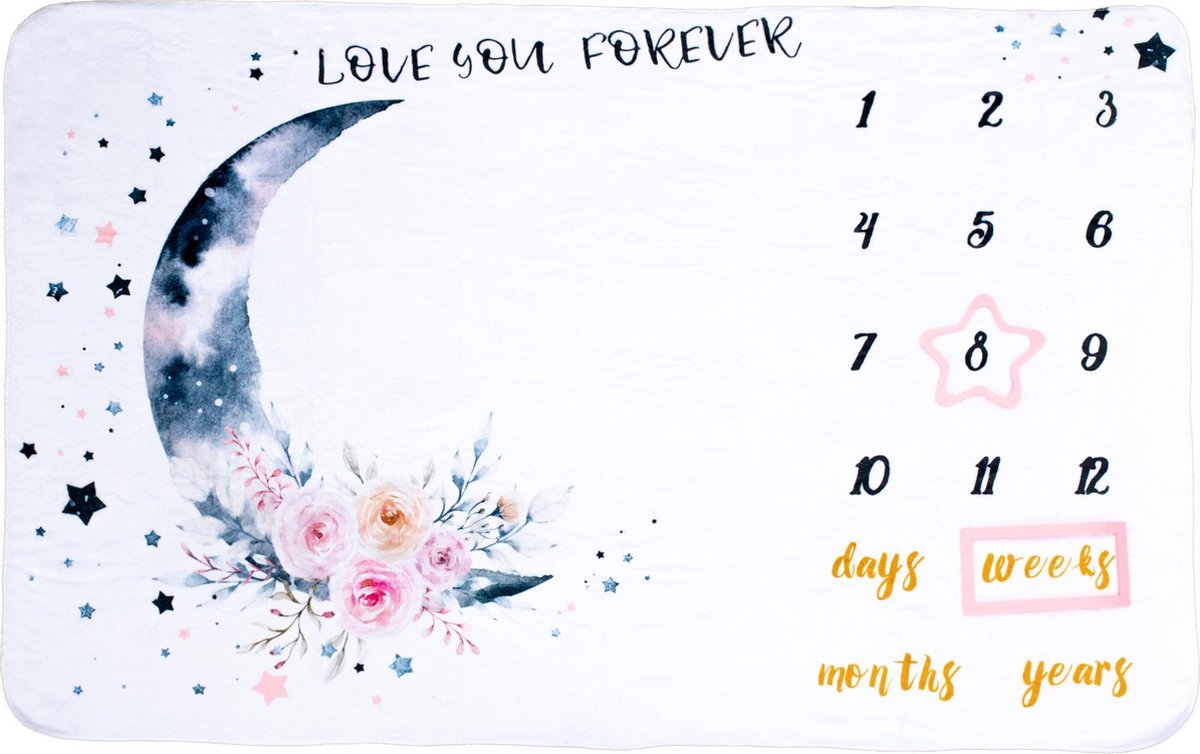 LOVE YOU FOREVER
1 2 3
4 5 6
7 8 9
10 11 12
days weeks
months years